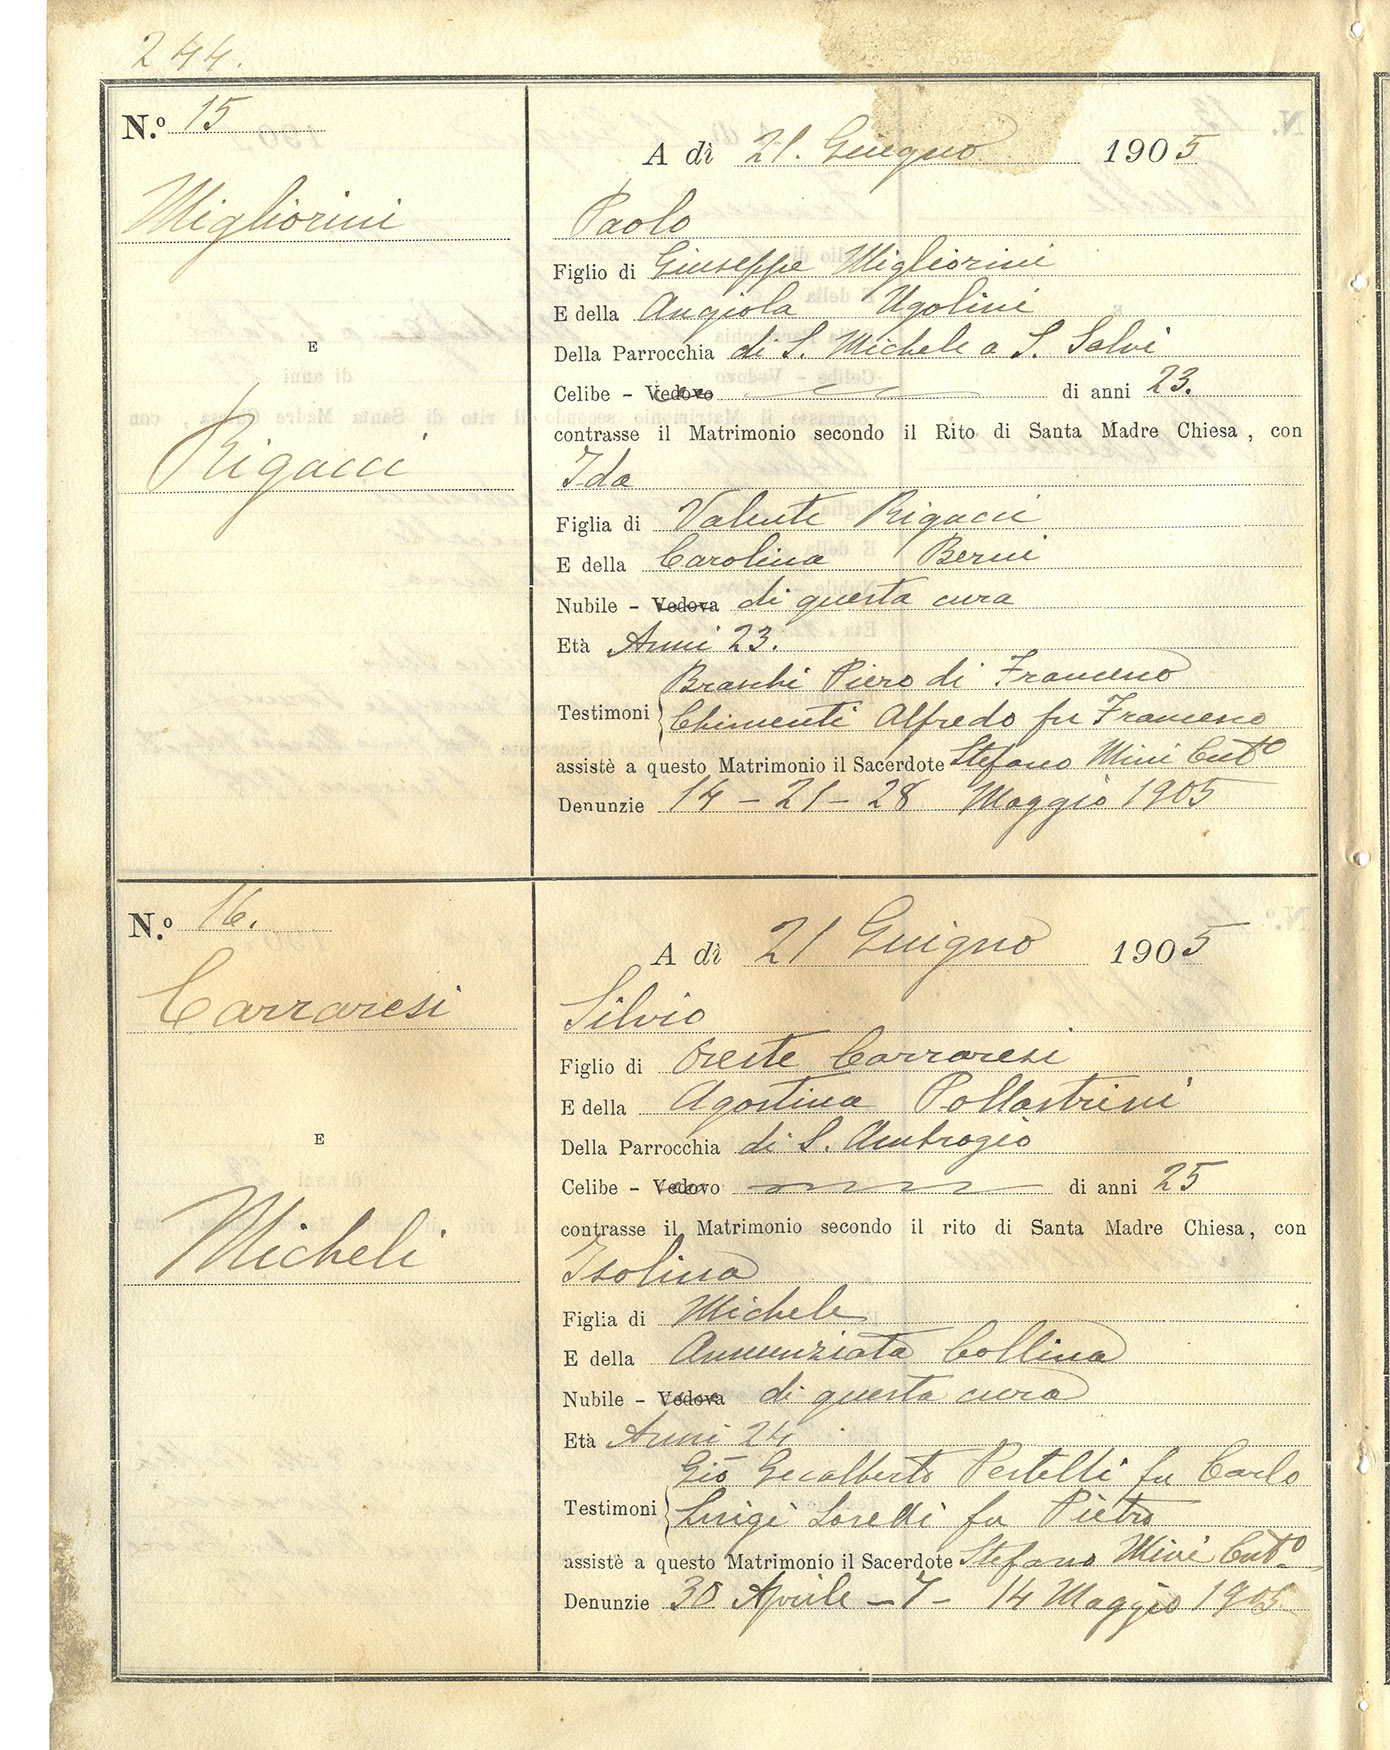 244.
N.º 15
A dì 21. Giugno 1905
Migliorini
Paolo
Figlio di Giuseppe Migliorini
E della Angiola Ugolini
Della Parrocchia di S. Michele a S. Salvi
E
Celibe - Vedovo di anni 23.
contrasse il Matrimonio secondo il Rito di Santa Madre Chiesa, con
Rigacci
Ida
Figlia di Valente Rigacci
E della Carolina Berni
Nubile - Vedova di questa cura
Età Anni 23.
Testimoni Braschi Piero di Francesco
Chimenti Alfredo fu Francesco
assistè a questo Matrimonio il Sacerdote Stefano Mini Cutº
Denunzie 14 - 21 - 28 Maggio 1905
N.º 16.
A dì 21 Giugno 1905
Carraresi
Silvio
Figlio di Oreste Carraresi
E della Agostina Pollastrini
E
Della Parrocchia di S. Ambrogio
Celibe - Vedovo di anni 25
contrasse il Matrimonio secondo il rito di Santa Madre Chiesa, con
Micheli
Isolina
Figlia di Michele
E della Annunziata Collina
Nubile - Vedova di questa cura
Età Anni 24
Testimoni Giō Gualberto fu Carlo
Luigi fu Pietro
assistè a questo Matrimonio il Sacerdote Stefano Mini Cutº
Denunzie 30 Aprile - 7 - 14 Maggio 1905